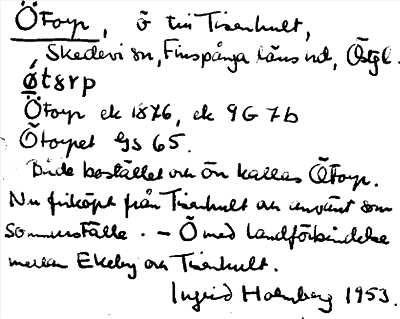 Ötorp, ö till Tisenhult,
Skedevi sn, Finspånga läns hd, Östgl.
ǿtørp
Ötorp ek 1876, ek 9G 7b
Ötorpet GS 65.
Både bostället och ön kallas Ötorp.
Nu friköpt från Tisenhult och använt som
sommarställe. – Ö med landförbindelse
mellan Ekeby och Tisenhult.
Ingrid Holmberg 1953.